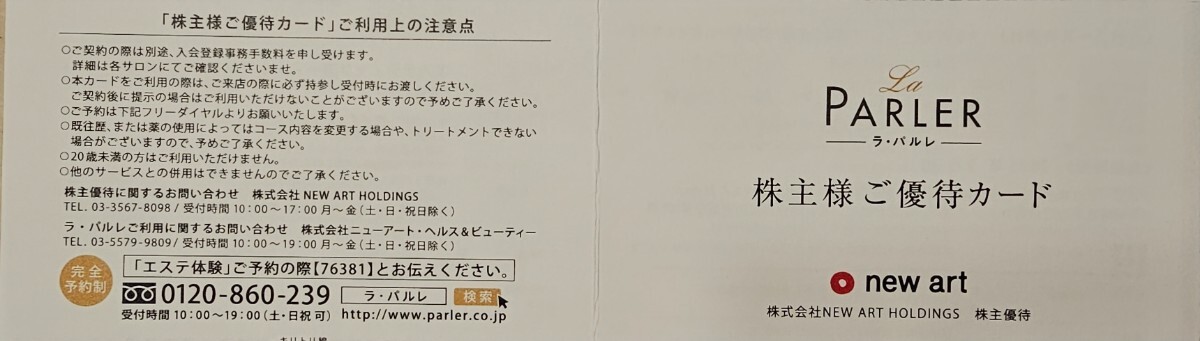 「株主様ご優待カード」ご利用上の注意点
○ご契約の際は別途、入会登録事務手数料を申し受けます。
詳細は各サロンにてご確認くださいませ。
○本カードをご利用の際は、ご来店の際に必ず持参し受付時にお渡しください。
ご契約後に提示の場合はご利用いただけないことがございますので予めご了承ください。
○ご予約は下記フリーダイヤルよりお願いいたします。
○既往歴、または薬の使用によってはコース内容を変更する場合や、トリートメントできない
場合がございますので、予めご了承ください。
○20歳未満の方はご利用いただけません。
○他のサービスとの併用はできませんのでご了承ください。
株主優待に関するお問い合わせ 株式会社 NEW ART HOLDINGS
TEL. 03-3567-8098 / 受付時間 10:00〜17:00 月〜金(土・日・祝日除く)
ラ・パルレご利用に関するお問い合わせ 株式会社ニューアート・ヘルス&ビューティー
TEL. 03-5579-9809 / 受付時間 10:00〜19:00 月〜金(土・日・祝日除く)
完全
予約制
「エステ体験」ご予約の際【76381】とお伝えください。
0120-860-239 ラ・パルレ 検索
受付時間 10:00〜19:00(土・日祝 可) http://www.parler.co.jp
キリトリ線
La
PARLER
ラ・パルレ
株主様ご優待カード
new art
株式会社NEW ART HOLDINGS 株主優待